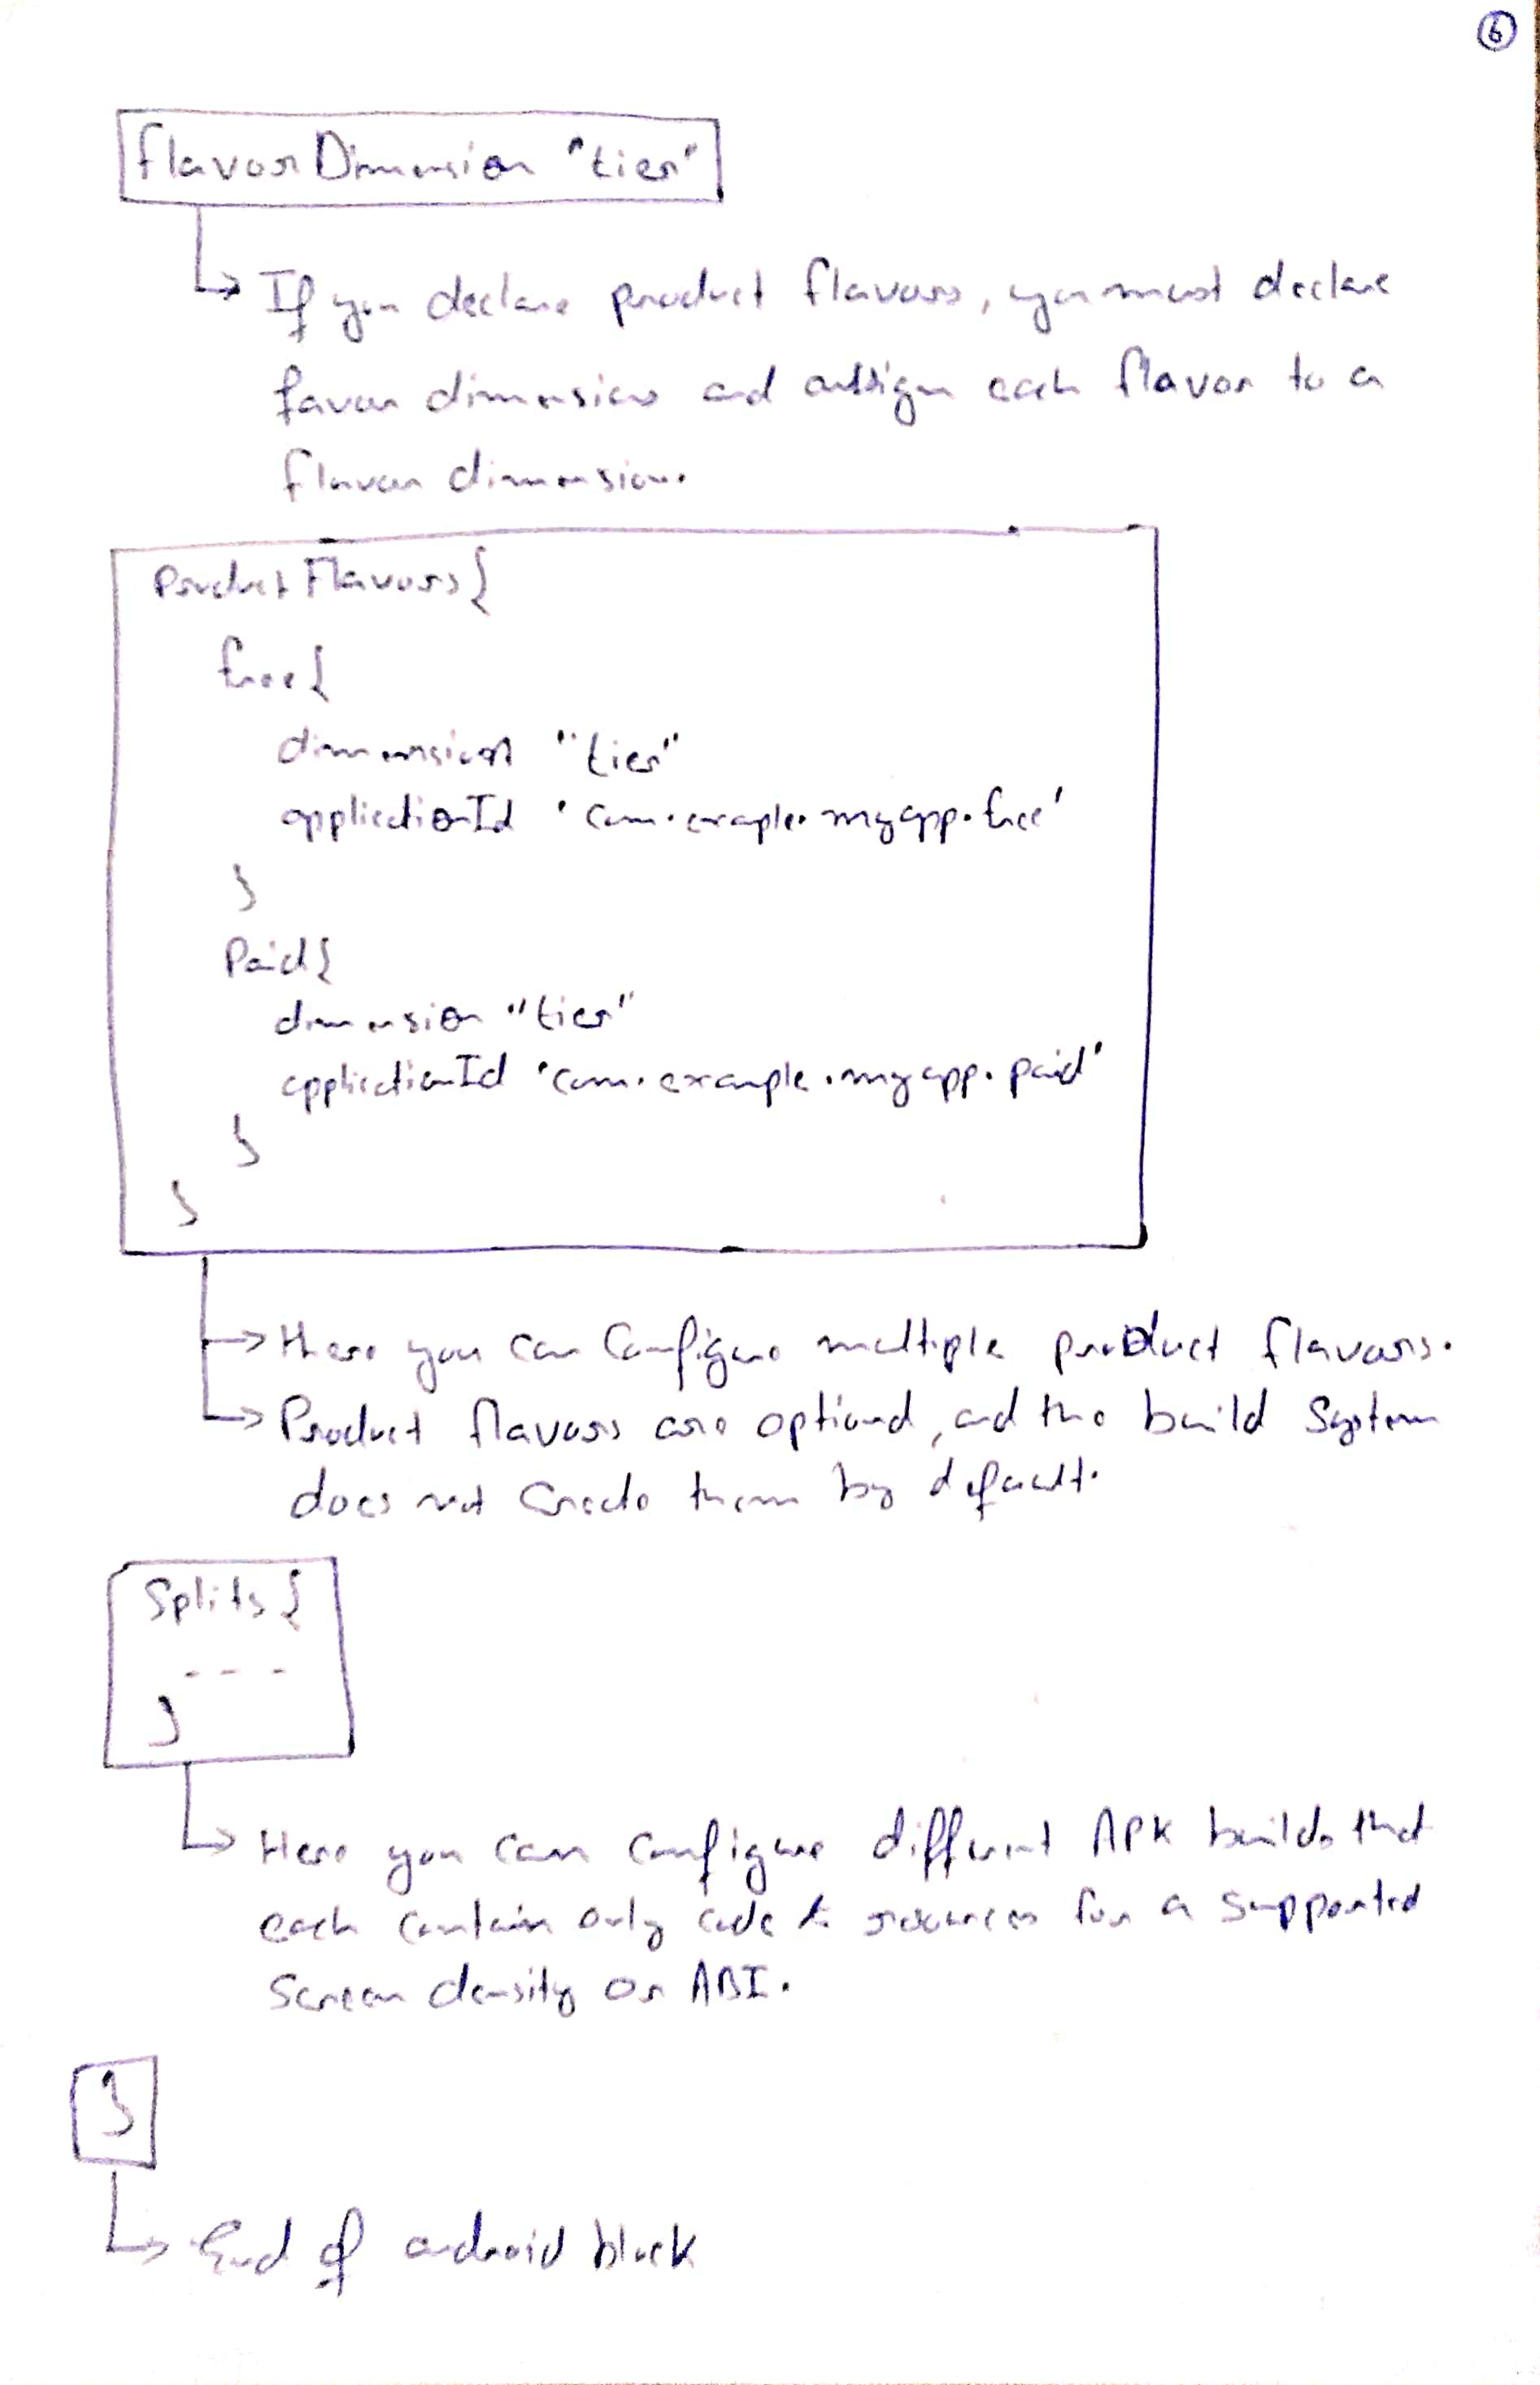 6
flavorDimension "tier"
If you declare product flavors, you must declare
favor dimensions and assign each flavor to a
flavor dimension.
ProductFlavors{
free{
dimension "tier"
applicationId 'com.exaple.myapp.free'
}
Paid{
dimension "tier"
applicationId 'com.example.myapp.paid'
}
}
Here you can Configure multiple product flavors.
Product flavors are optional, and the build System
does not Create them by default.
Splits{
- - -
}
Here you can Configure different APK builds that
each contain only code & resources for a supported
Screen density or ABI.
}
End of android block